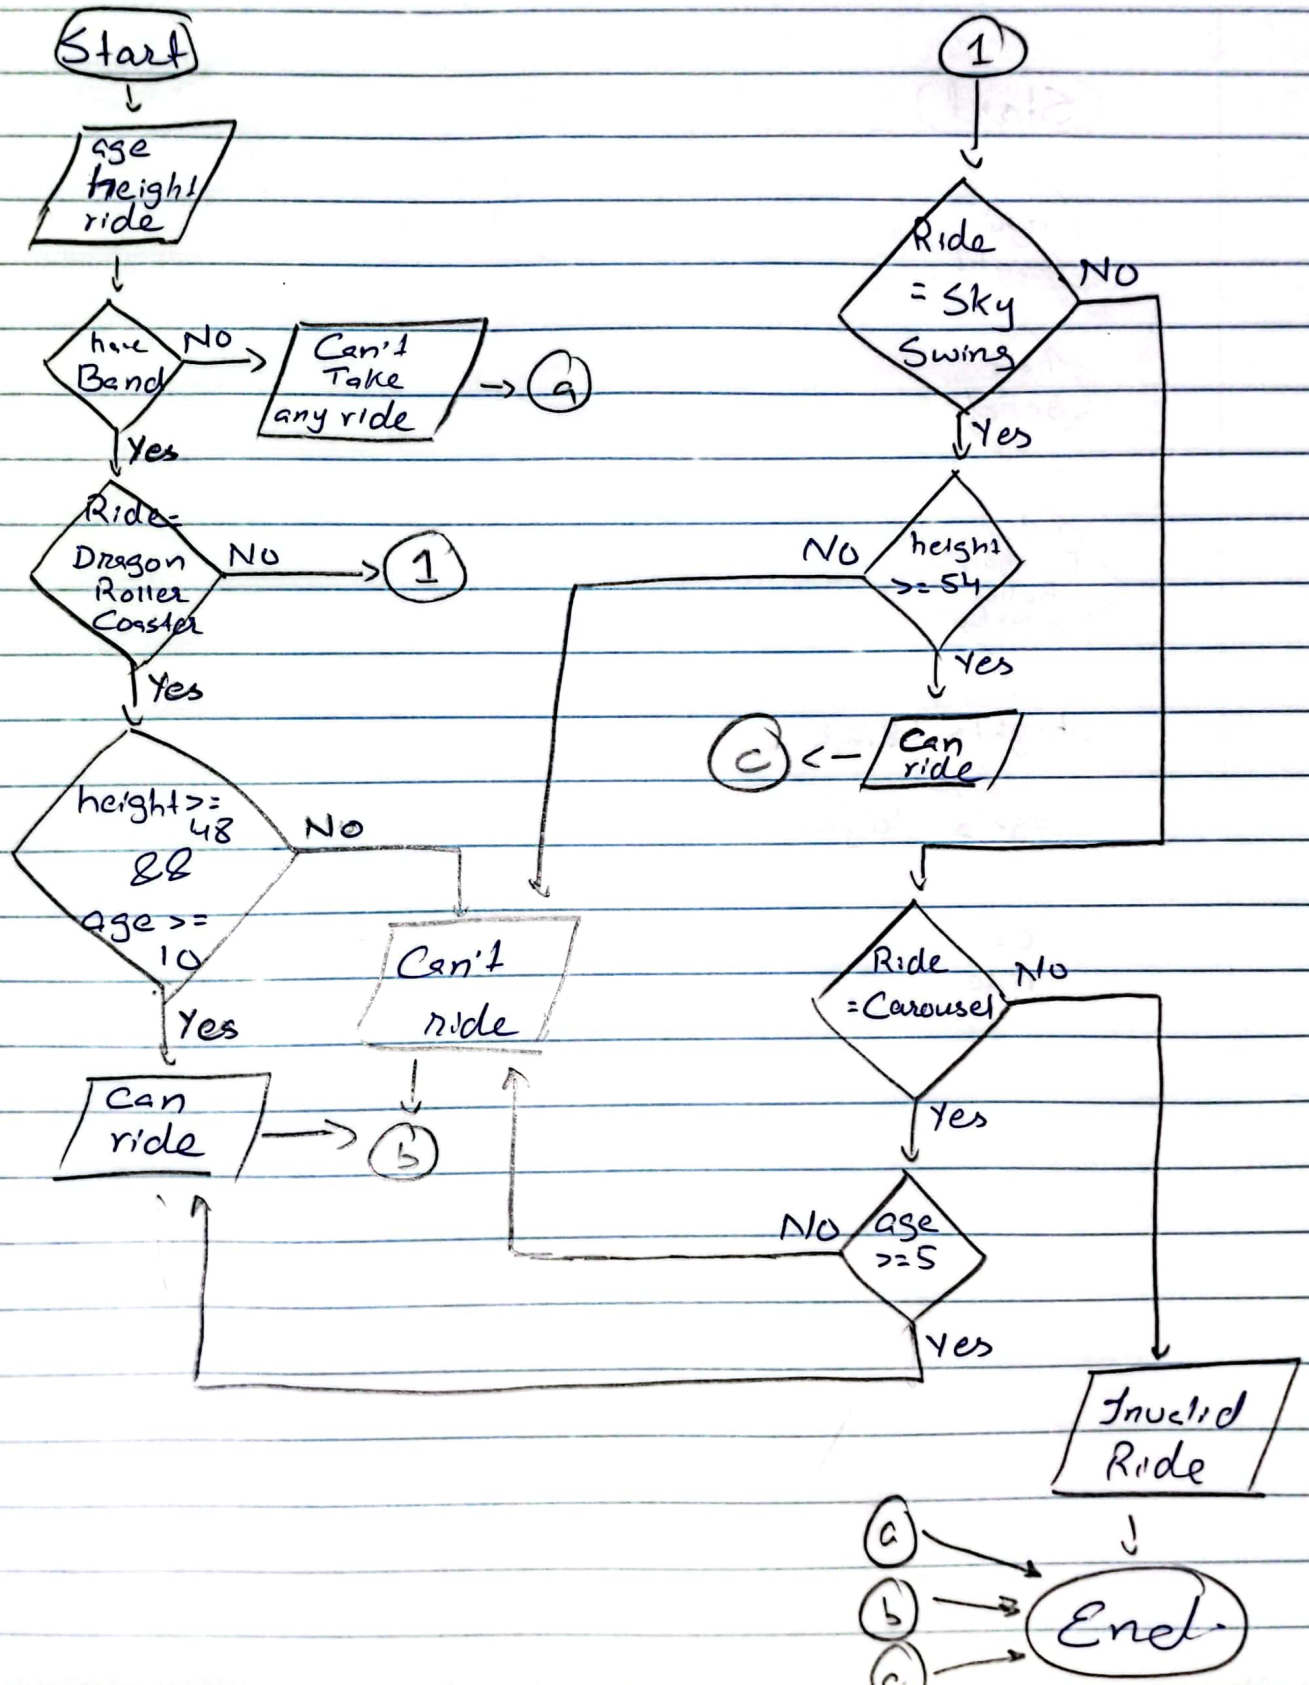 Start
age
height
ride
have
Band
No
Can't
Take
any ride
a
Yes
Ride=
Dragon
Roller
Coaster
No
1
Yes
height>=
48
&&
age >=
10
No
Can't
ride
Yes
Can
ride
b
1
Ride
= Sky
Swing
No
Yes
height
>=54
No
Yes
Can
ride
c
Ride
=Carousel
No
Yes
age
>=5
No
Yes
Invalid
Ride
a
b
c
End